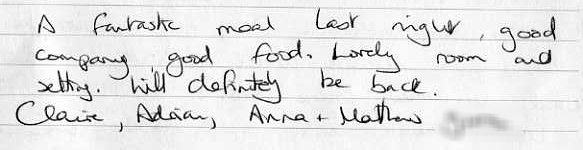 A fantastic meal last night, good
company, good food. Lovely room and
setting. Will definitely be back.
Claire, Adrian, Anna + Mathew